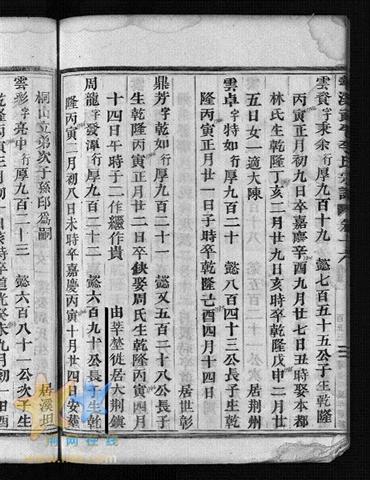 雲賓字秉余行厚九百十九　懿七百五十五公子生乾隆
丙寅正月初九日卒嘉慶辛酉九月廿七日丑時娶本都
林氏生乾隆丁亥二月廿九日亥時卒乾隆戊申二月廿
五日女一適大陳　居荆州
雲卓字特如行厚九百二十　懿八百四十三公長子生乾
隆丙寅正月廿一日子時卒乾隆己酉四月十四日
居世彰
鼎芳字乾如行厚九百二十一　懿又五百二十八公長子
生乾隆丙寅正月廿二日卒缺娶周氏生乾隆丙寅四月
十四日午時子二作繼作貴
由莘塍徙居大荆鎮
周龍字發潭行厚九百二十二　懿六百九十公長子生乾
隆丙寅二月初八日未時卒嘉慶丙寅十月廿四日安葬
桐山立弟次子孫邱爲嗣　居溪坦
雲彩字亮中行厚九百二十三　懿六百八十一公次子生